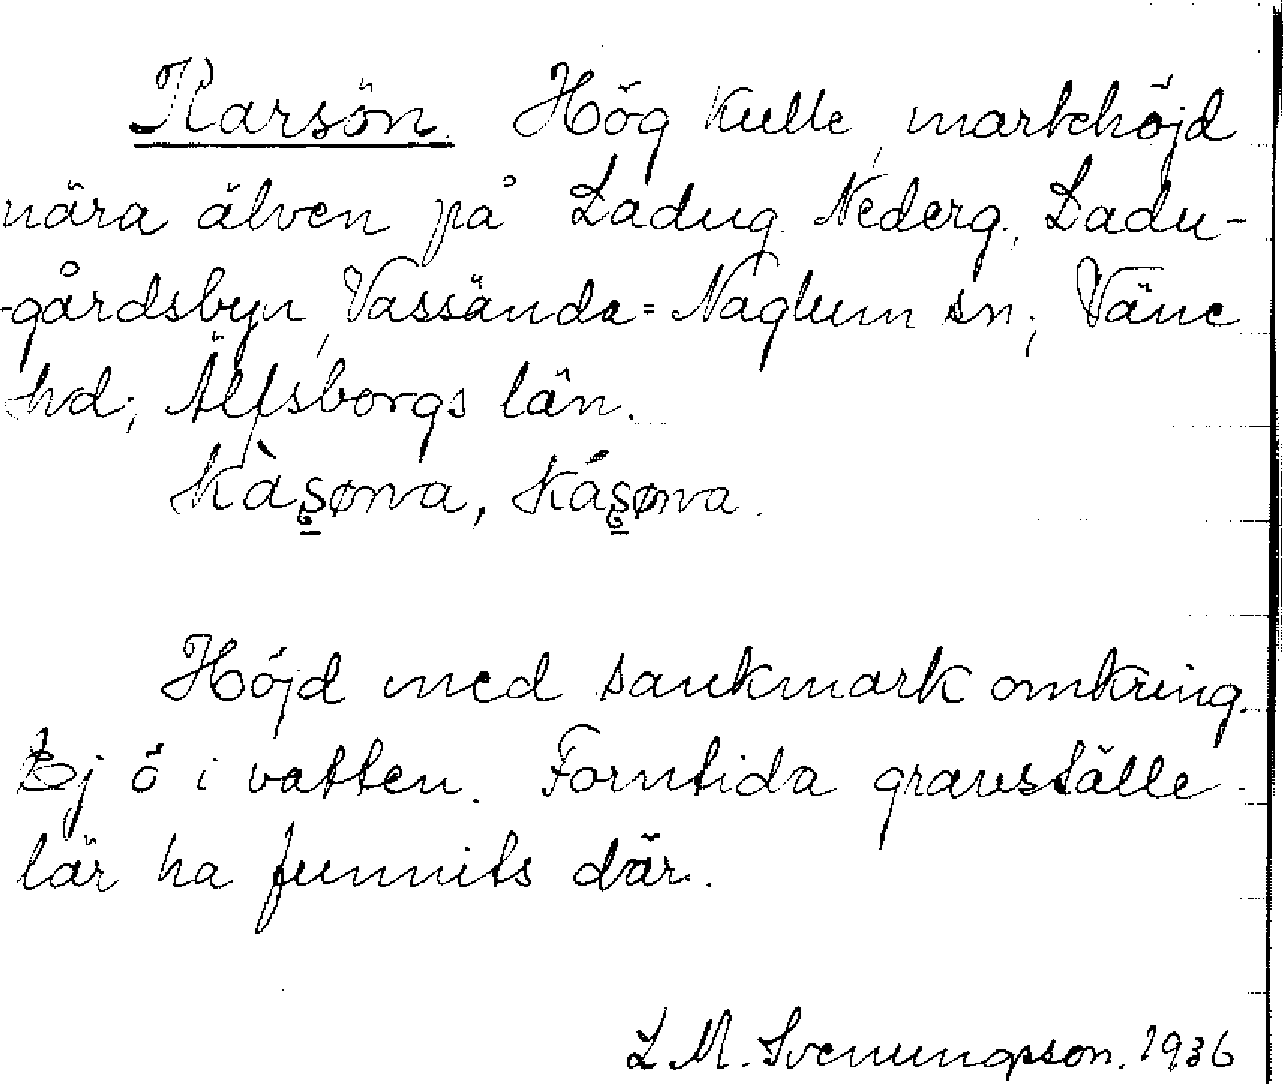 Karsön. Hög kulle, markhöjd
nära älven på Ladug. Nederg., Ladu-
-gårdsbyn, Vassända=Naglum sn; Väne
hd; Älfsborgs län.
Kàs̠øna, Kás̠øna.
Höjd med sankmark omkring.
Ej ö i vatten. Forntida gravställe
lär ha funnits där.
L M. Svenungsson. 1936